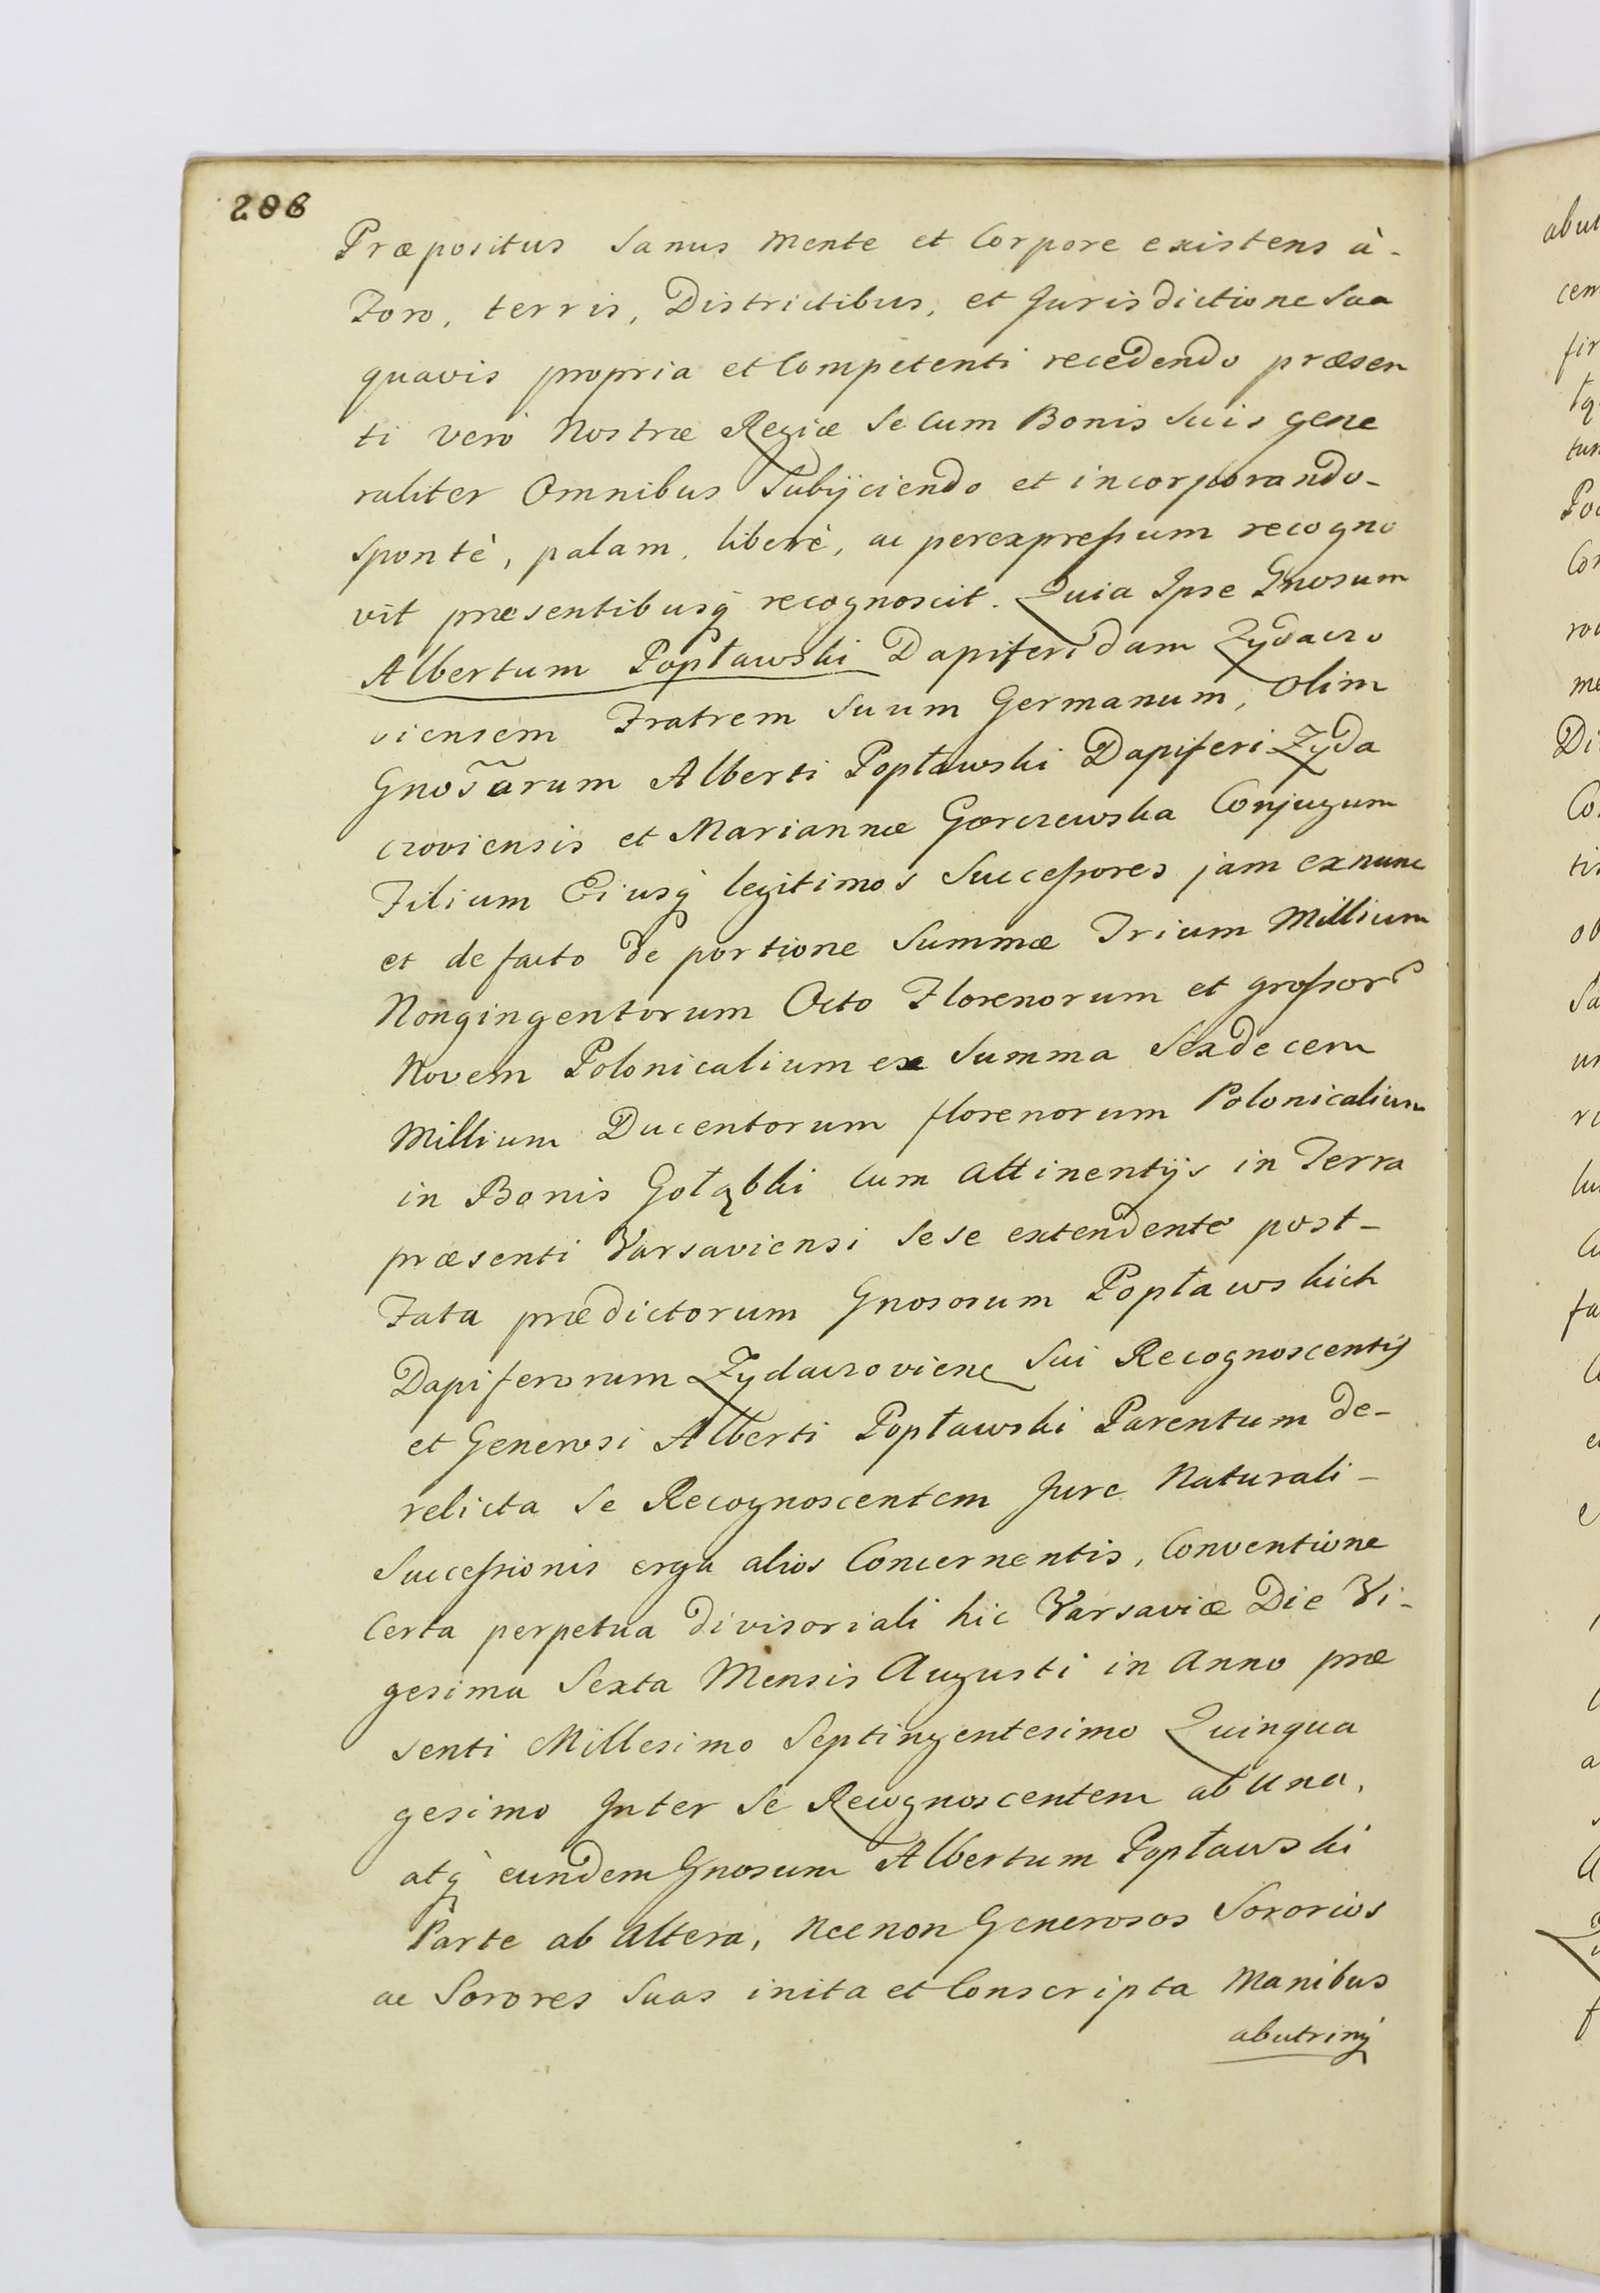 206
Præpositus Sanus Mente et Corpore existens à-
Foro, terris, Districtibus, et Jurisdictione Sua
quavis propria et Competenti recedendo præsen
ti verò Nostræ Regiæ Se Cum Bonis Suis gene
raliter Omnibus Subijciendo et incorporando-
Spontè, palam, liberè, ac perexpreſsum recogno
vit præsentibusq recognoscit. Quia Ipse Gnosum
Albertum Popławski Dapiferidam Zydaczo
viensem Fratrem Suum Germanum, Olim
Gnosarum Alberti Popławski Dapiferi Zyda
czoviensis et Mariannæ Gorczewska Conjugum
Filium Eiusq legitimos Succeſsores jam exnunc
et de facto de portione Summæ Trium Millium
Nongingentorum Octo Florenorum et groſsor
Novem Polonicalium ex Summa Sexdecem
Millium Ducentorum florenorum Polonicalium
in Bonis Gołąbki Cum Attinentijs in Terra
præsenti Varsaviensi Sese extendente post-
Fata prædictorum Gnosorum Popławskich
Dapiferorum Zydaczoviene Sui Recognoscentis
et Generosi Alberti Popławski Parentum de-
relicta Se Recognoscentem Jure Naturali-
Succeſsionis erga alios Concernentis, Conventione
Certa perpetua divisoriali hic Varsaviæ Die Vi-
gesima Sexta Mensis Augusti in Anno præ
senti Millesimo Septingentesimo Quinqua
gesimo Inter Se Recognoscentem ab Una,
atq eundem Gnosum Albertum Popławski
Parte ab Altera, Necnon Generosos Sororios
ac Sorores Suas inita et Conscripta Manibus
abutrinq